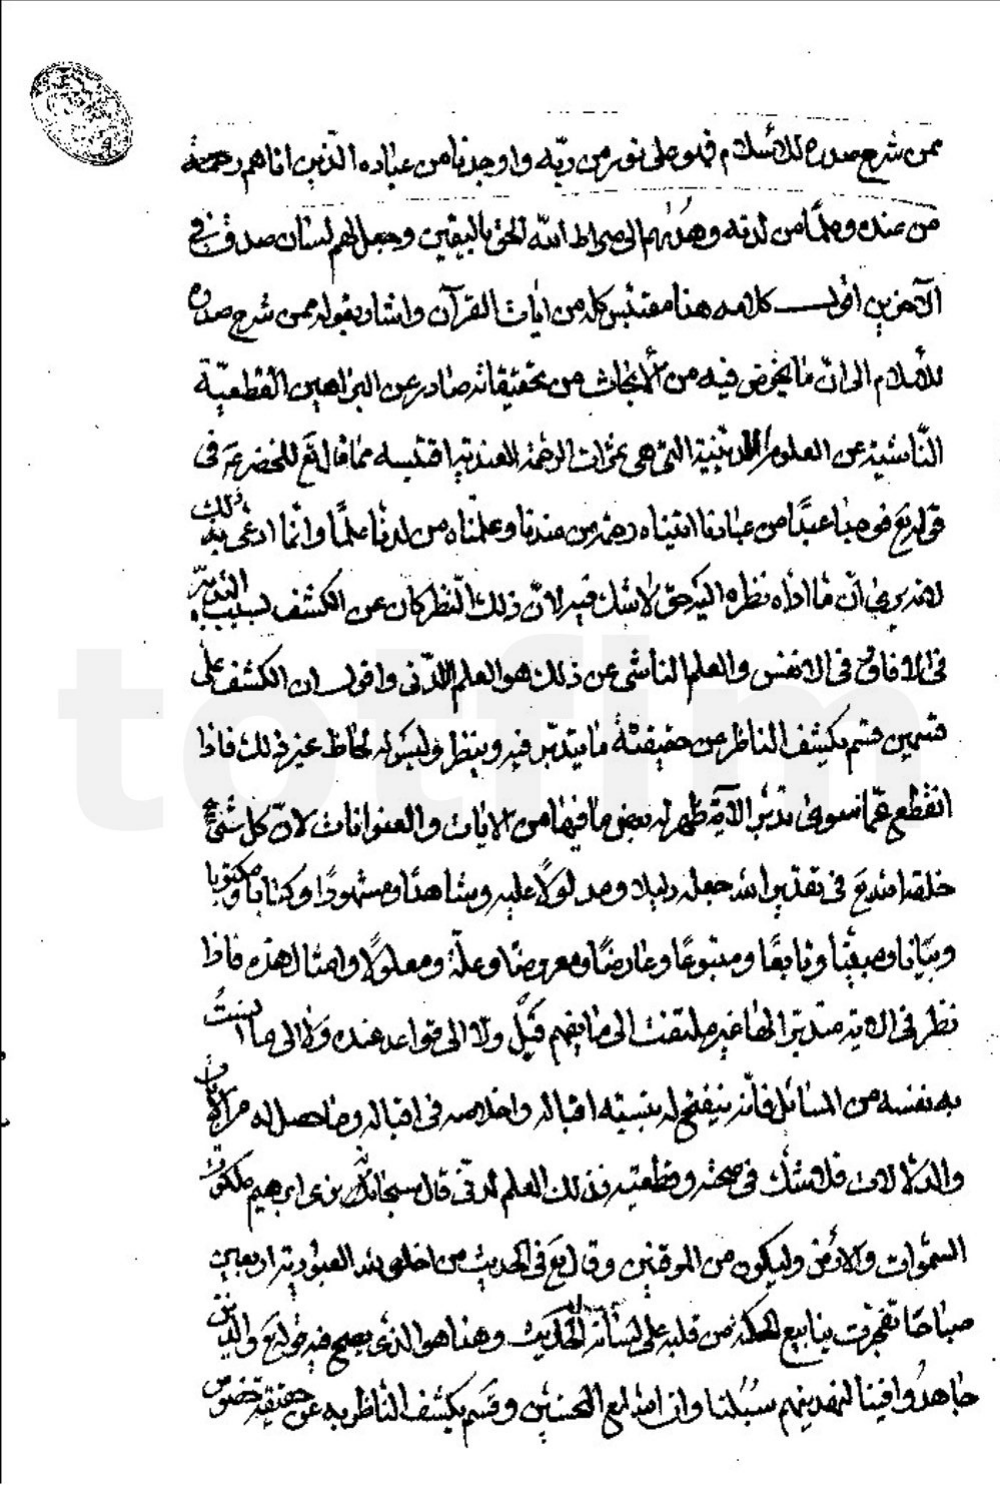 ممن شرح صدره للاسلام فهو على نور من ربّه واوجدنا من عباده الّذين اتاهم رحمة
من عنده وعلمًا من لدنه وهداهم الى صراط اللّه الحق باليقين وجعل لهم لسان صدق في
الآخرين اقول كلامه هنا مقتبس كله من ايات القرآن واشار بقوله ممن شرح صدره
للاسلام الى انّ ما يخوض فيه من الابحاث من تحقيقاته صادر عن البراهين القطعيّة
النّاشئة عن العلوم اللدنيّة التي هي ثمرات الرحمة العنديه اقتبسه مما قال تع للخضر ع في
قوله تع فوجدا عبدًا من عبادنا اتيناه رحمة من عندنا وعلّمناه من لدنا علمًا وانّما ادعى ذلك
لانه يرى انّ ما اداه نظره اليه حق لا شك فيه لانّ ذلك النّظر كان عن الكشف لسبب التدبّر
في الافاق وفي الانفس والعلم الناشي عن ذلك هو العلم اللّدنى واقول ان الكشف على
قسمين قسم يكشف الناظر عن حقيقة ما يتدبّر فيه وينظر وليس له لحاظ غير ذلك فاذا
انقطع عمّا سوى تدبّر الآية ظهر له بعض ما فيها من الايات والعنوانات لانّ كل شئ
خلقه اللّه تع في تقدير اللّه جعله دليلا ومدلولًا عليه وشاهدًا ومشهودًا وكتابا ومكتوبا
وبيانا ومبيّنا وتابعًا ومتبوعًا وعارضًا ومعروضًا وعلّة ومعلولًا وامثال هذه فاذا
نظر في الاية متدبّرا لها غير ملتفت الى ما يفهم قبل ولا الى قواعد عنده ولا الى ما انست
به نفسه من المسائل فانّه ينفتح له بنسبة اقباله واخلاصه في اقباله وما حصل له من الايات
والدلالات فلا شك في صحته وقطعيته فذلك العلم لدنّى قال سبحانه وكذلك نرى ابرهيم ملكوت
السموات والارض وليكون من الموقنين وقال ع في الحديث من اخلص للّه العبوديّة اربعين
صباحًا تفجّرت ينابيع الحكمة من قلبه على لسانه الحديث وهذا هو الذى يصحّ فيه قوله تع والّذين
جاهدوا فينا لنهدينهم سُبُلنا وان اللّه لمع المحسنين وقسم يكشف الناظر به عن حقيقة خصوص